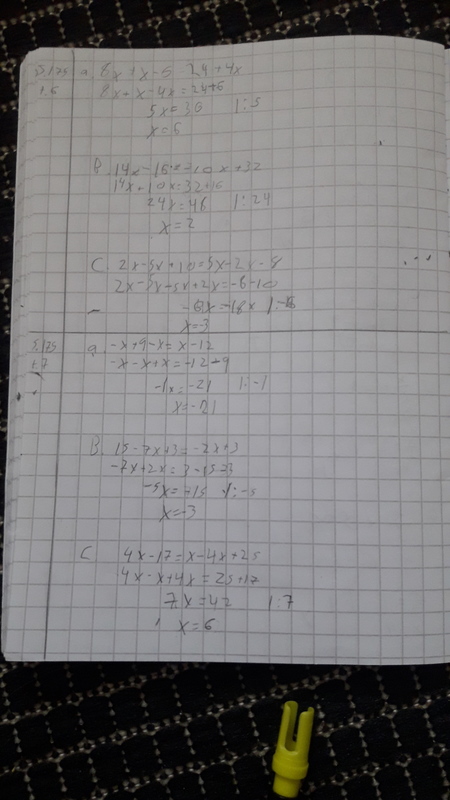 S.175 a. 8x+x-6=24+4x
1.6 8x+x-4x=24+6
5x=30 |:5
x=6
B. 14x-16=-10x+32
14x+10x=32+16
24x=46 |:24
x=2
C. 2x-5x+10=5x-2x-8
2x-5x-5x+2x=-8-10
x=3
S.175 a. -x+9-x=x-12
1.7 -x-x+x=-12-9
-1x=-21 |:-1
x=-21
B. 15-7x+3=-2x+3
-7x+2x=3-15-3
-5x=-15 |:-5
x=-3
C. 4x-17=x-4x+25
4x-x+4x=25+17
7x=42 |:7
x=6